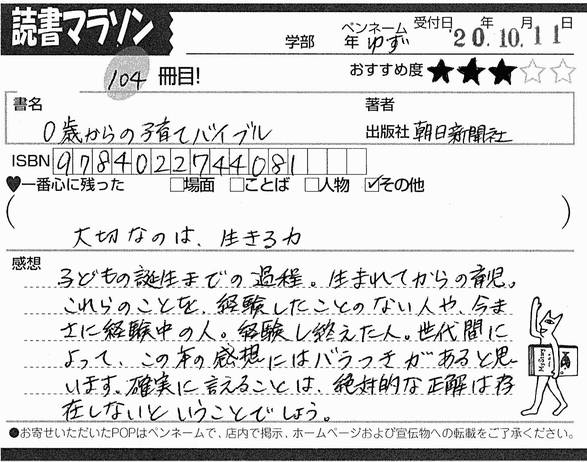 読書マラソン
学部 年 ペンネーム ゆず 受付日 '20年 10月 11日
104 冊目! おすすめ度 ★★★☆☆
書名 著者
0歳からの子育てバイブル 出版社 朝日新聞社
ISBN 9784022744081
♥一番心に残った □場面 □ことば □人物 ☑その他
( 大切なのは、生きる力 )
感想
子どもの誕生までの過程。生まれてからの育児。
これらのことを、経験したことのない人や、今ま
さに経験中の人。経験し終えた人。世代間に
よって、この本の感想にはバラつきがあると思
います。確実に言えることは、絶対的な正解は存
在しないということでしょう。
●お寄せいただいたPOPはペンネームで、店内で掲示、ホームページおよび宣伝物への転載をご了承ください。